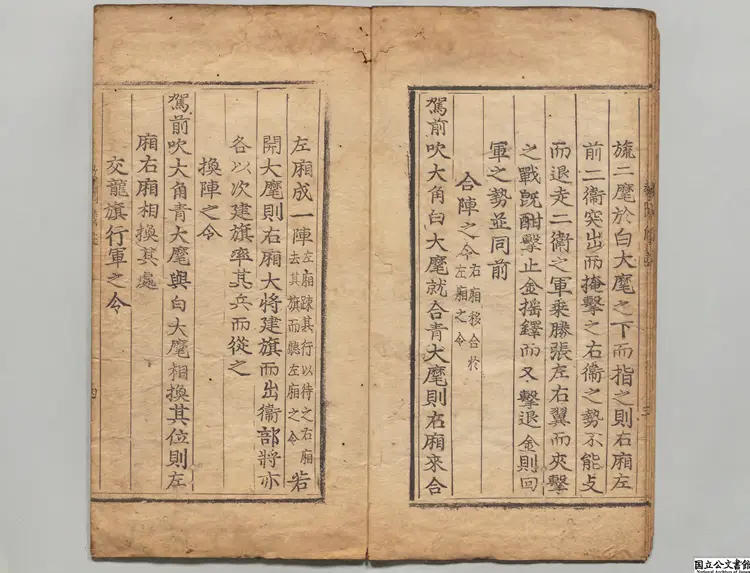 旒二麾於白大麾之下而指之則右廂左
前二衞突出而掩擊之右衞之勢不能支
而退走二衞之軍乗勝張左右翼而夾擊
之戰旣酣擊止金揺鐸而又擊退金則回
軍之勢並同前
合陣之令右廂移合於左廂之令
駕前吹大角白大麾就合青大麾則右廂來合
左廂成一陣左廂疎其行以待之右廂去其旗而聽左廂之令若
開大麾則右廂大將建旗而出衞部將亦
各以次建旗率其兵而從之
換陣之令
駕前吹大角青大麾與白大麾相換其位則左
廂右廂相換其處
交龍旗行軍之令
三
四
国立公文書館
National Archives of Japan